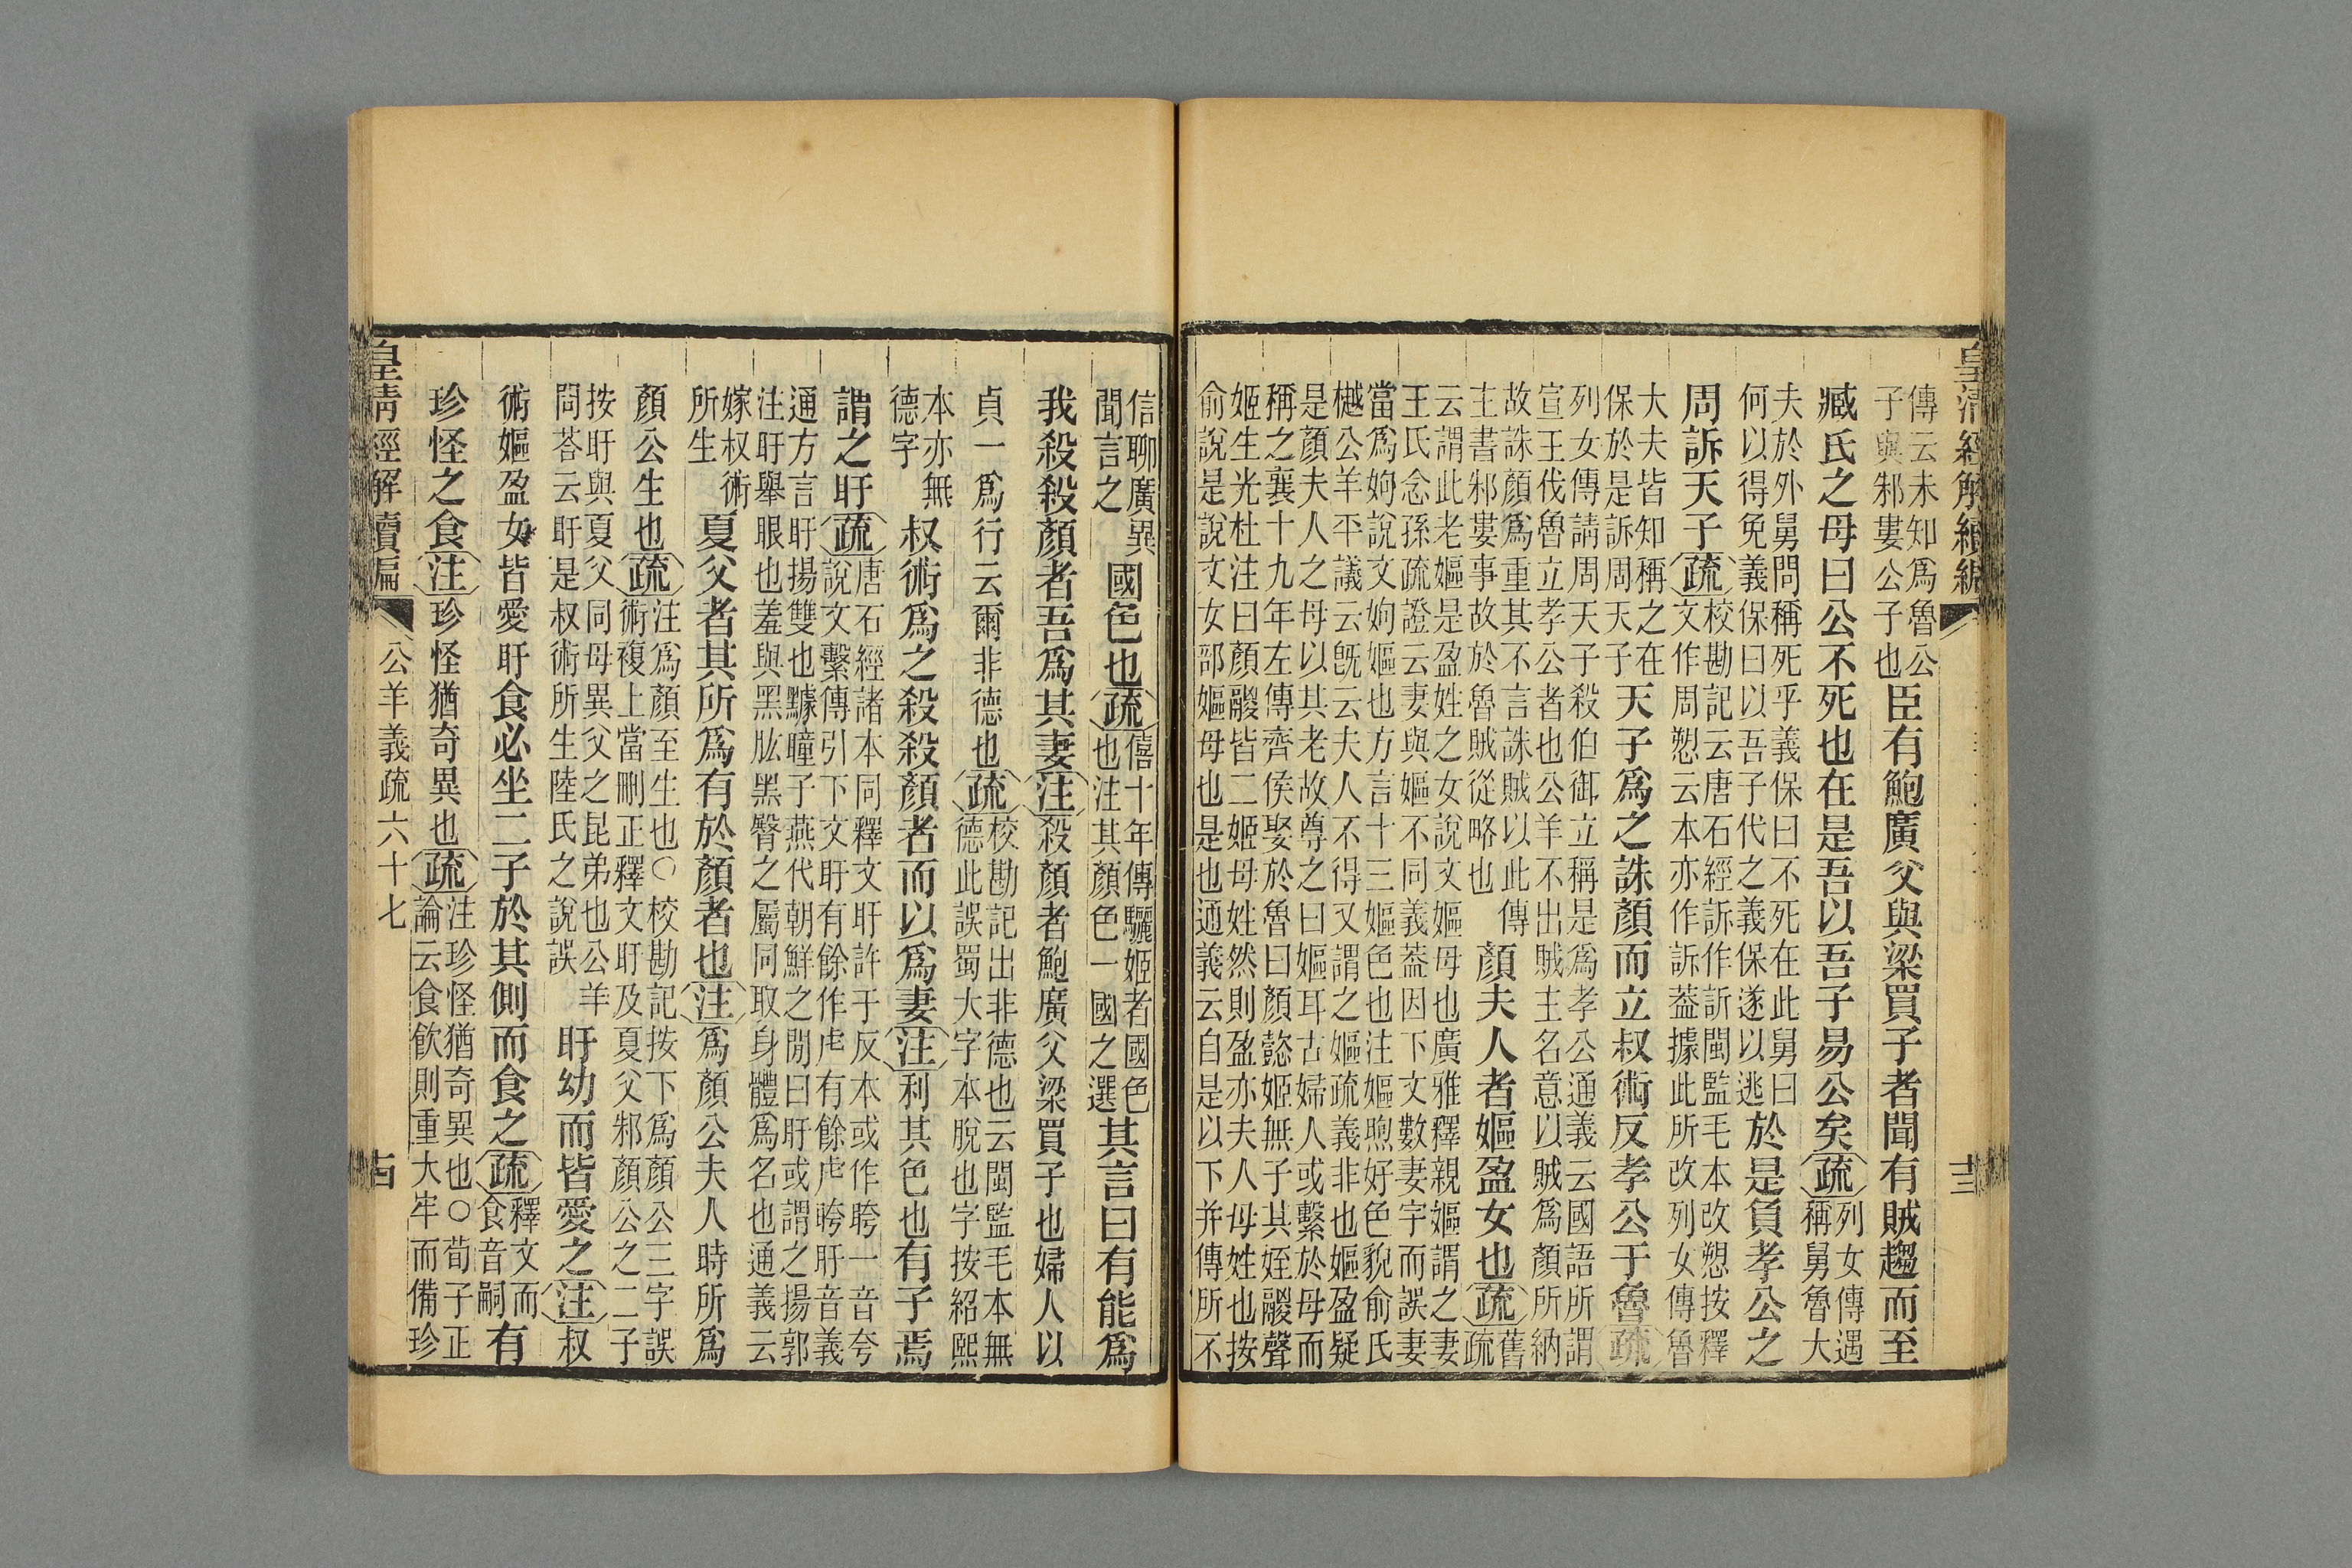 皇清經解續編
傳云未知爲魯公
子與邾婁公子也
臣有鮑廣父與梁買子者聞有賊趨而至
臧氏之母曰公不死也在是吾以吾子易公矣疏
列女傳遇
稱舅魯大
夫於外舅問稱死乎義保曰不死在此舅曰
何以得免義保曰以吾子代之義保遂以逃
於是負孝公之
周訴天子疏
校勘記云唐石經訴作訢閩監毛本改愬按釋
文作周愬云本亦作訴葢據此所改列女傳魯
大夫皆知稱之在
保於是訴周天子
天子爲之誅顏而立叔術反孝公于魯疏
列女傳請周天子殺伯御立稱是爲孝公通義云國語所謂
宣王伐魯立孝公者也公羊不出賊主名意以賊爲顏所納
故誅顏爲重其不言誅賊以此傳
主書邾婁事故於魯賊從略也
顏夫人者嫗盈女也疏
舊
疏
云謂此老嫗是盈姓之女說文嫗母也廣雅釋親嫗謂之妻
王氏念孫疏證云妻與嫗不同義葢因下文數妻字而誤妻
當爲姁說文姁嫗也方言十三嫗色也注嫗煦好色貌俞氏
樾公羊平議云旣云夫人不得又謂之嫗疏義非也嫗盈疑
是顏夫人之母以其老故尊之曰嫗耳古婦人或繫於母而
稱之襄十九年左傳齊侯娶於魯曰顏懿姬無子其姪鬷聲
姬生光杜注曰顏鬷皆二姬母姓然則盈亦夫人母姓也按
俞說是說文女部嫗母也是也通義云自是以下并傳所不
信聊廣異
聞言之
國色也疏
僖十年傳驪姬者國色
也注其顏色一國之選
其言曰有能爲
我殺殺顏者吾爲其妻注殺顏者鮑廣父梁買子也婦人以
貞一爲行云爾非德也疏
校勘記出非德也云閩監毛本無
德此誤蜀大字本脫也字按紹熙
本亦無
德字
叔術爲之殺殺顏者而以爲妻注利其色也有子焉
謂之盱疏
唐石經諸本同釋文盱許于反本或作䀏一音夸
說文繫傳引下文盱有餘作虍有餘虍䀏盱音義
通方言盱揚雙也驢瞳子燕代朝鮮之閒曰盱或謂之揚郭
注盱舉眼也羞與黑肱黑臀之屬同取身體爲名也通義云
嫁叔術
所生
夏父者其所爲有於顏者也注爲顏公夫人時所爲
顏公生也疏
注爲顏至生也○校勘記按下爲顏公三字誤
術複上當刪正釋文盱及夏父邾顏公之二子
按盱與夏父同母異父之昆弟也公羊
問荅云盱是叔術所生陸氏之說誤
盱幼而皆愛之注叔
術嫗盈女皆愛盱食必坐二子於其側而食之疏
釋文而
食音嗣
有
珍怪之食注珍怪猶奇異也疏
注珍怪猶奇異也○荀子正
論云食飮則重大牢而備珍
皇清經解續編
公羊義疏六十七